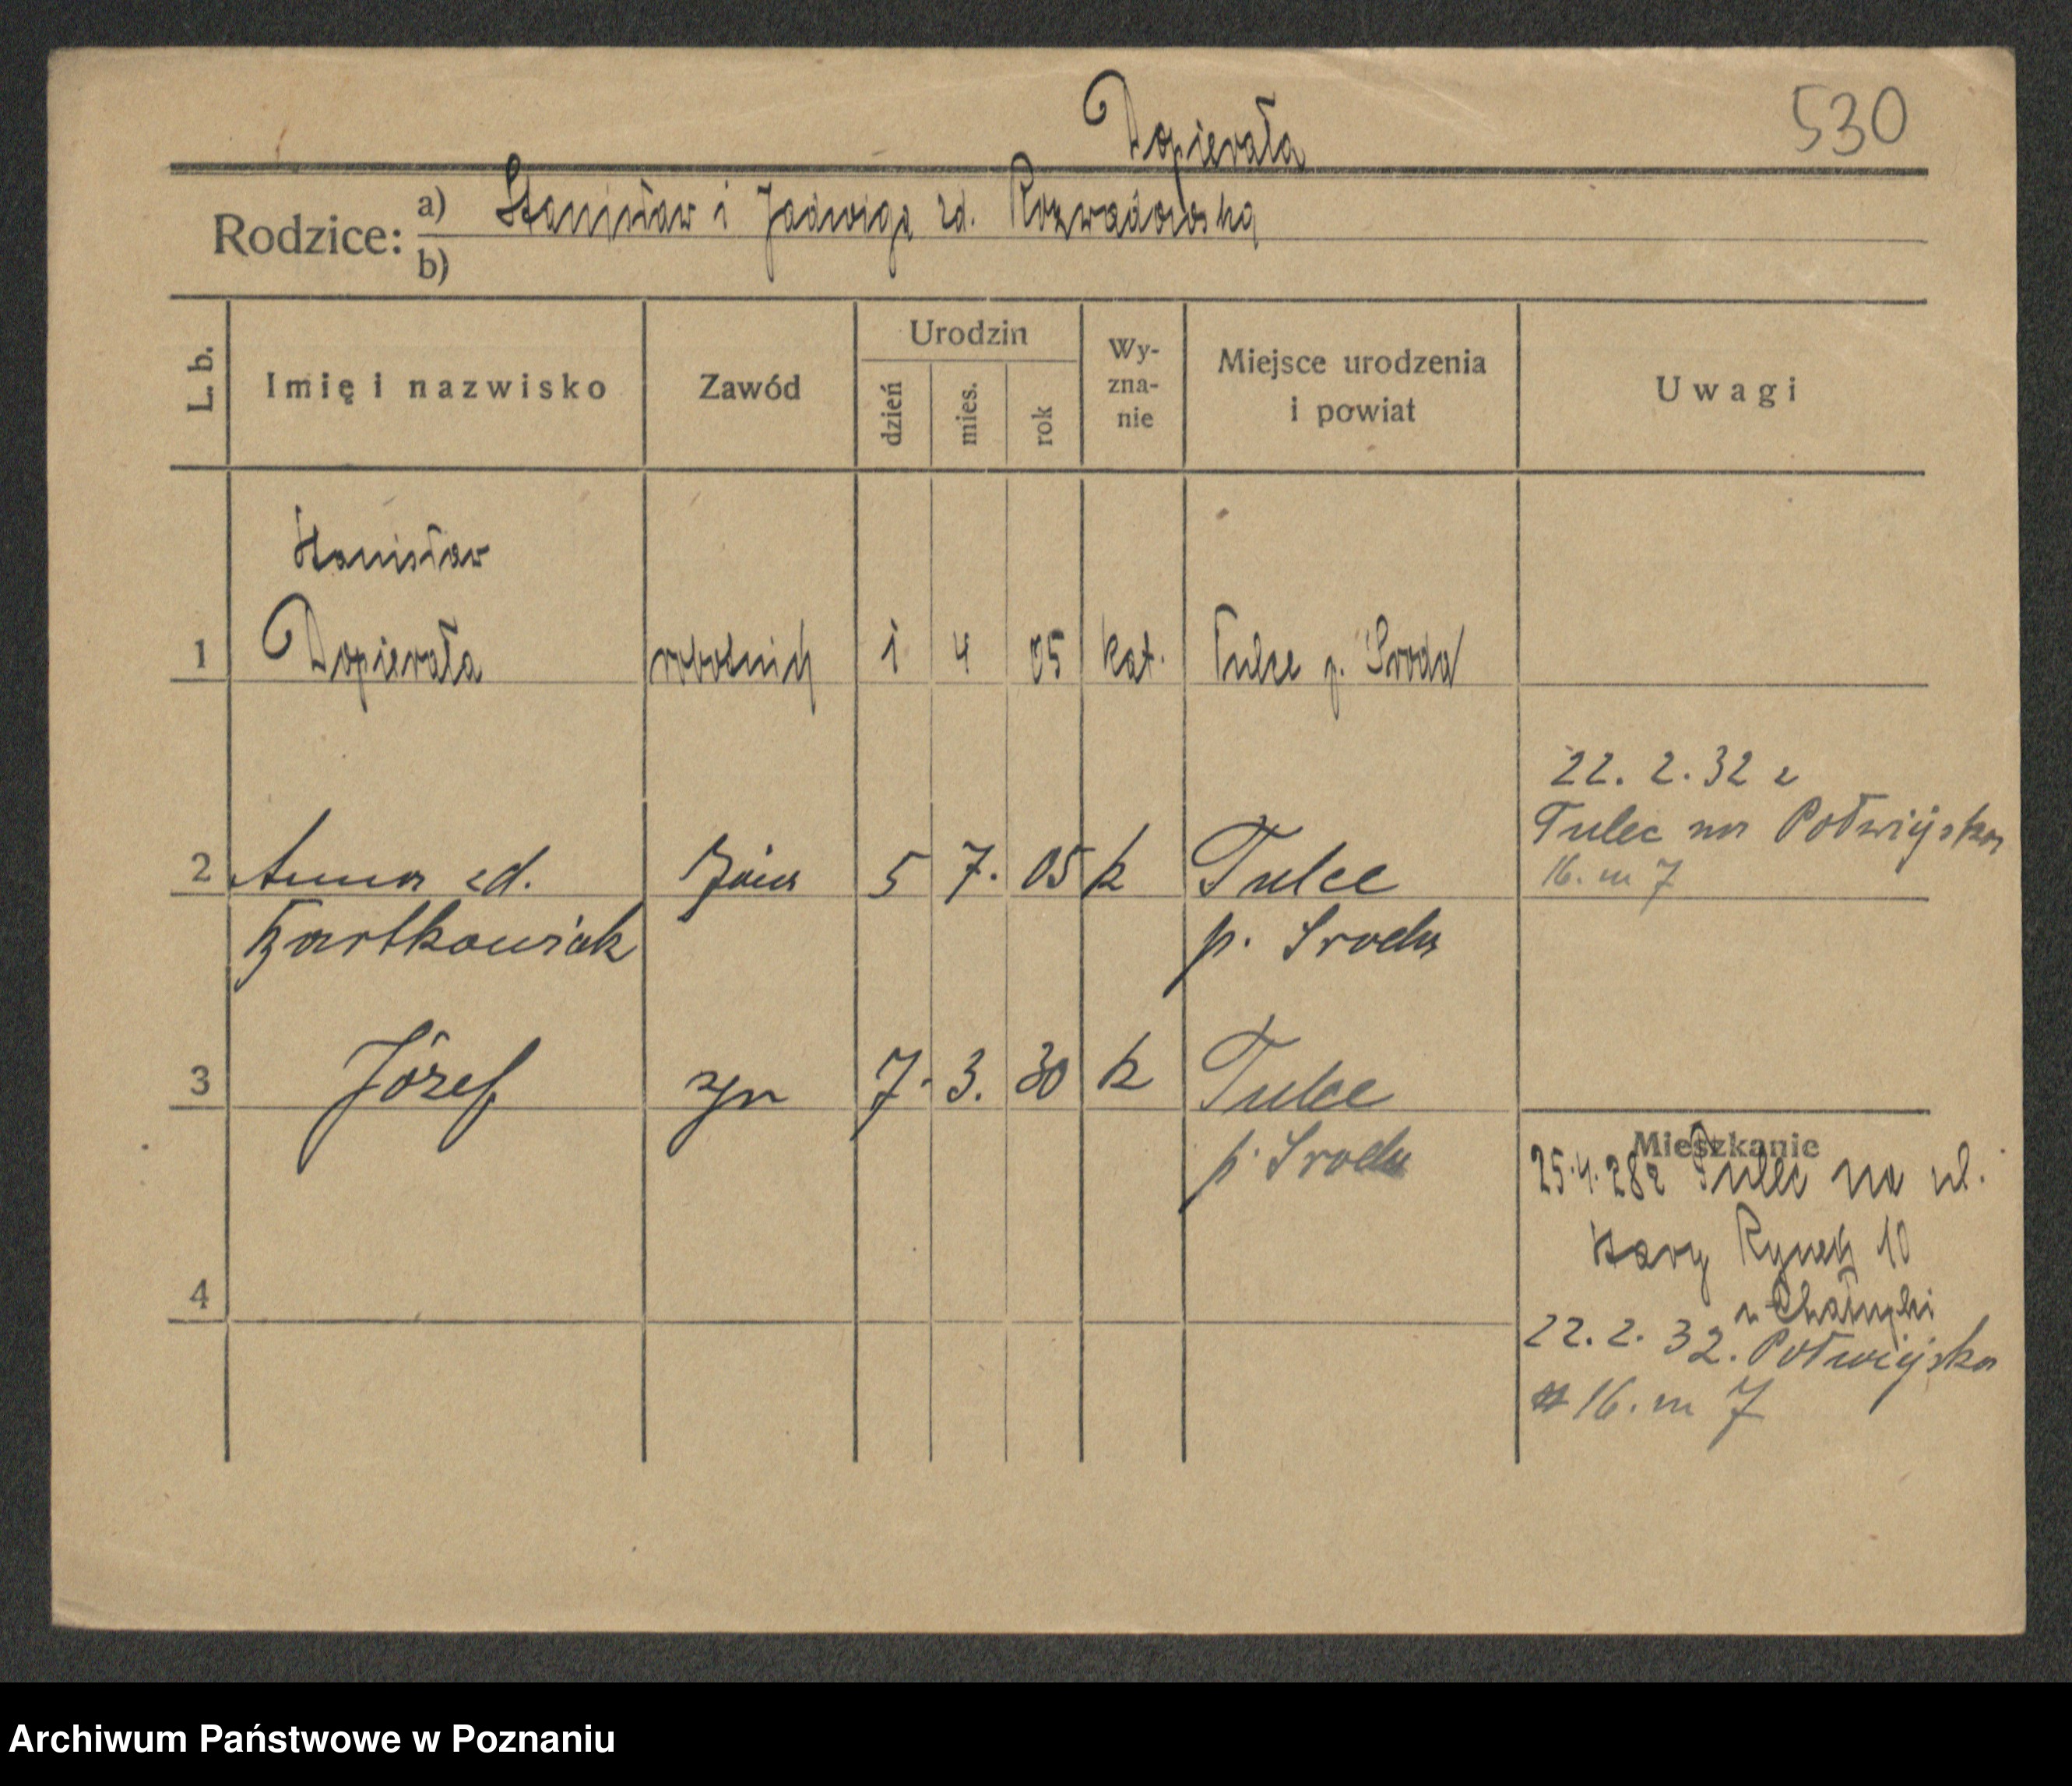 530
Dopierała
Rodzice: a) Stanisław i Jadwiga zd. Rozwadowska
b)
L. b. Imię i nazwisko Zawód Urodzin dzień mies. rok Wy-zna-nie Miejsce urodzenia i powiat Uwagi
Stanisław
1 Dopierała robotnik 1 4 05 kat. Tulce p. Środa
22. 2. 32 z
Tulec na Półwiejska
16. m 7
2 Anna zd. żona 5 7. 05 k Tulce
Bartkowiak p. Sroda
3 Józef syn 7. 3. 30 k Tulce
p. Sroda
Mieszkanie
25.4.28 z Tulec na ul.
Stary Rynek 10
4
22. 2. 32. Półwiejska
16. m 7
Archiwum Państwowe w Poznaniu